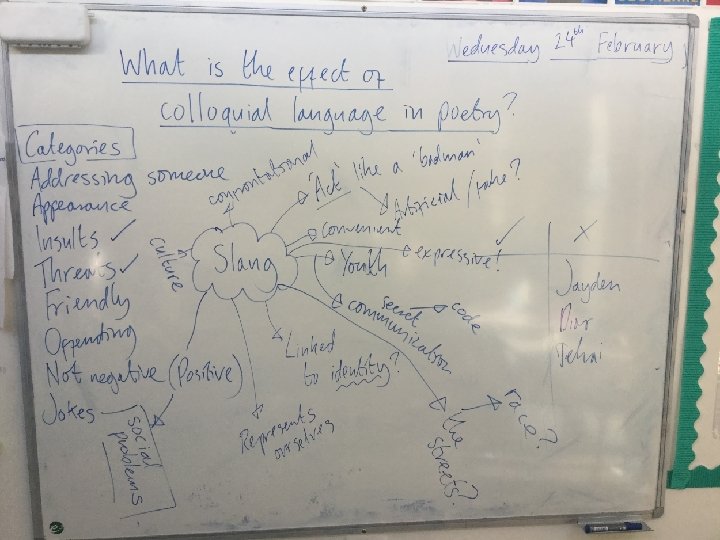 Wednesday 24th February
What is the effect of
colloquial language in poetry?
Categories
Addressing someone
Appearance
Insults ✓
Threats ✓
Friendly
Offending
Not negative (Positive)
Jokes
social
problems
Slang
culture
confrontational
'Act' like a 'badman'
Artificial / fake?
convenient
expressive! ✓
Youth
secret
communication
code
Linked
to identity?
Represents
ourselves
the
streets?
race?
X
Jayden